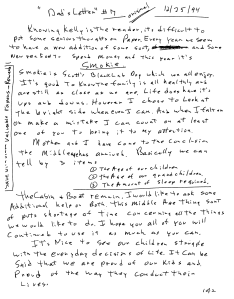 "Dad's Letter" #7
original
12/25/94
Knowing Kelly is the reader, its difficult to
Put some serious thoughts on Paper. Every year we seem
to have a new addition of some sort, and some
New method to spend money and this year it's
Smokie
Smokie is Scott's Black Lab Dog which we all enjoy.
It's good To Know the family is all healthy and
are still as close as we are. Life does have it's
ups and downs. However I chose to look at
the bright side whenever I can. And when I fail or
to make a mistake I can count on at least
one of you to bring it to my attention.
Mother and I have come to the Conclusion
the Middle ages has arrived. Basically we can
tell by 3 items
① The Age of our children
② The Age of our grand children.
③ The Amount of sleep required.
The Cabin & Boat remain. I would like to ask some
Additional help on Both. This middle Age Thing sort
of puts shortage of time concerning all the Things
we would like to do. I hope you all of you will
Continue to use it as much as you can.
It's Nice to see our children struggle
with the everyday decisions of life. It Can be
Said that we are proud of our Kids and
Proud of the way they conduct their
Lives.
1 of 2